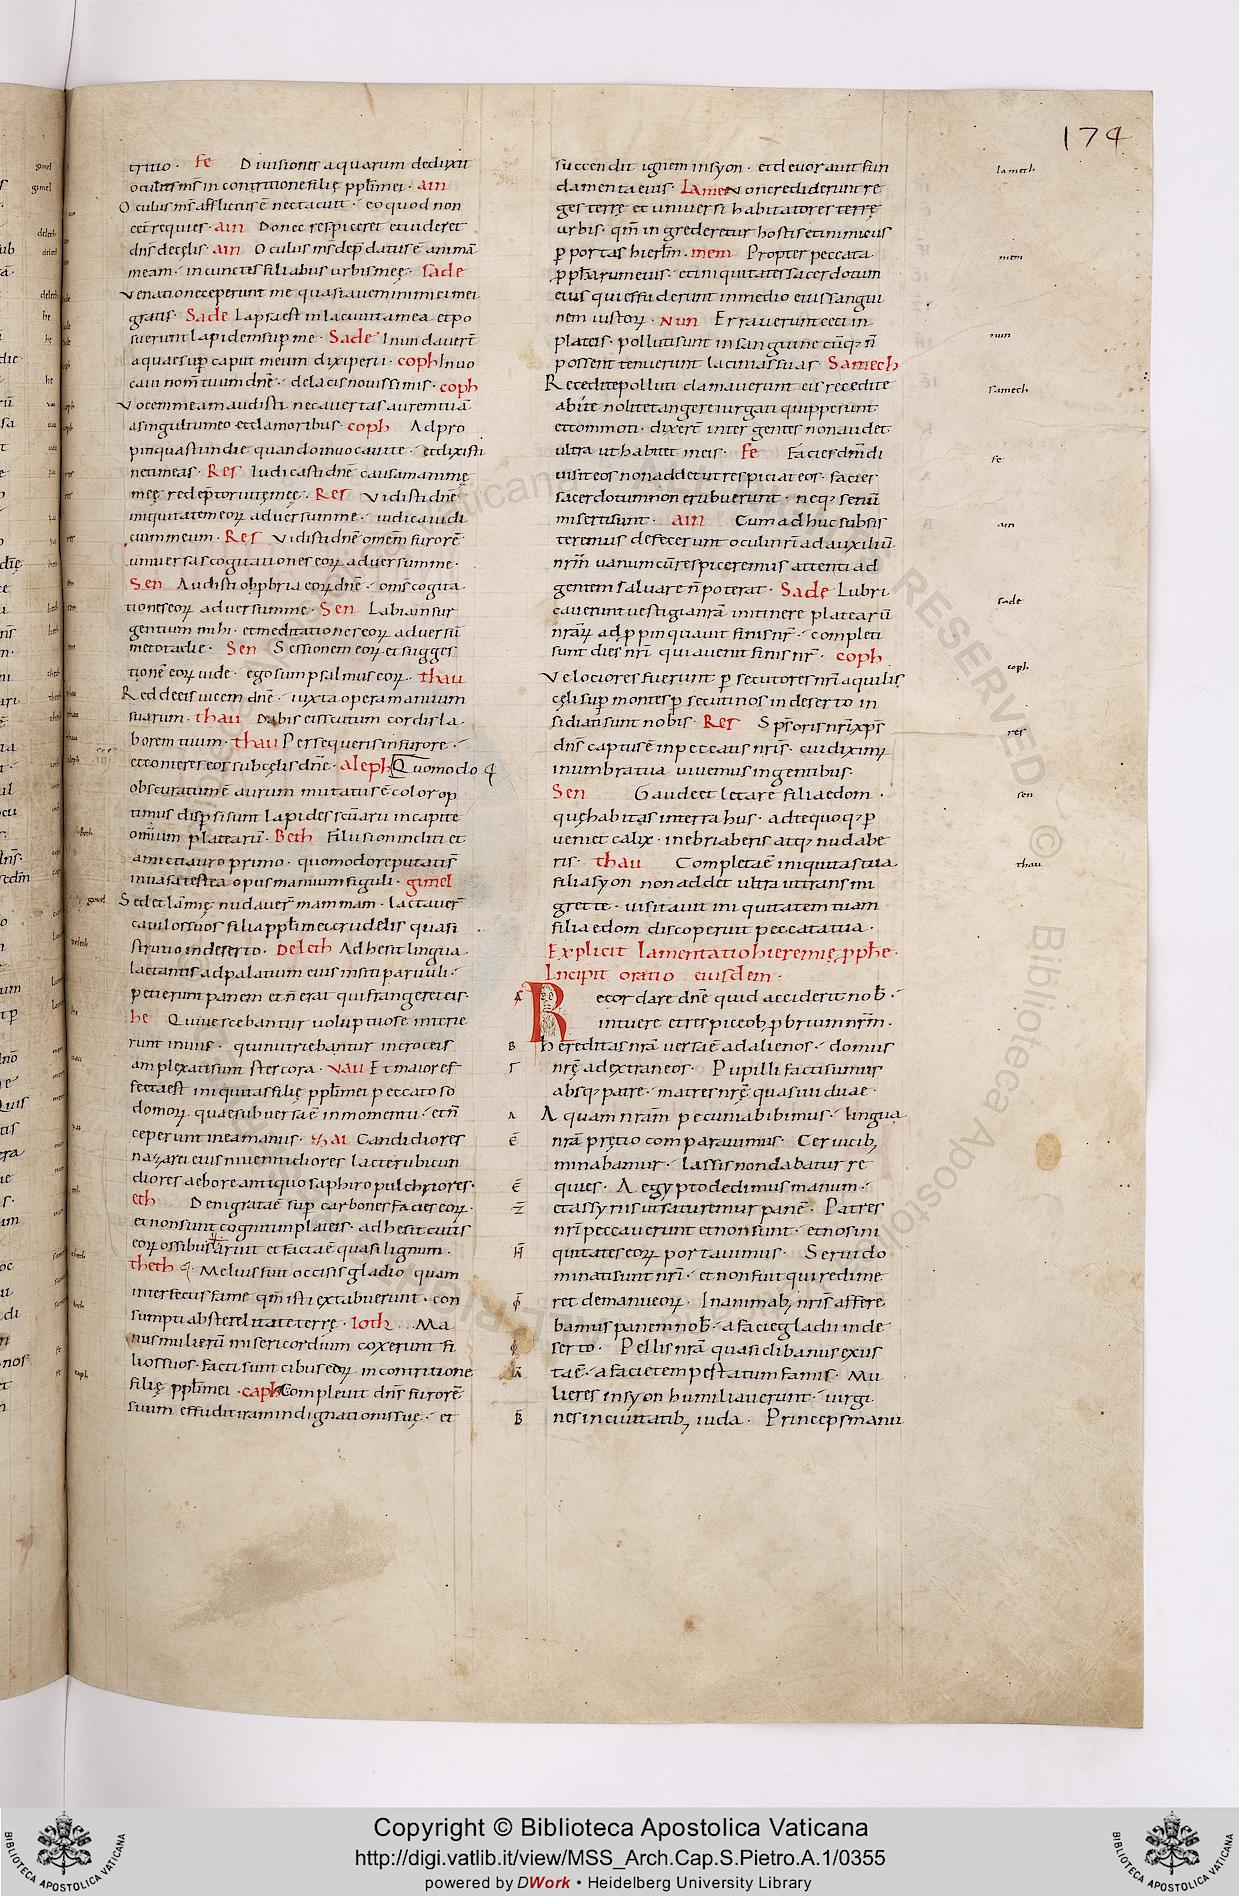 174
tritio · Fe Diuisiones aquarum deduxit
oculus ms̄ in contritione filię ppłi mei · ain
Oculus ms̄ afflictus ē nec tacuit · eo quod non
eēt requies · ain Donec respiceret et uideret
dn̄s de cęlis · ain Oculus ms̄ depdatus ē animā
meam · in cunctis filiabus urbis męę · sade
Venatione ceperunt me quasi auem inimici mei
gratis · Sade Lapsa est in lacu uita mea et po
suerunt lapidem sup me · Sade Inundauerū
aquae sup caput meum dixi perii · coph Inuo
caui nom̄ tuum dn̄e · de lacis nouissimis · coph
Vocem meam audisti ne auertas aurem tuā
a singultu meo et clamoribus · coph Adpro
pinquasti in die quando inuocaui te · et dixisti
ne timeas · Res Iudicasti dn̄e causam animę
męę redēptor uitę męę · Res Vidisti dn̄e
iniquitatem eorꝝ aduersum me · iudica iudi
cium meum · Res Vidisti dn̄e omem̄ furorē
uniuersas cogitationes eorꝝ aduersum me ·
Sen Audisti obpbria eorꝝ dn̄e · oms̄ cogita
tiones eorꝝ aduersum me · Sen Labia insur
gentium mihi · et meditationes eorꝝ aduersū
me tota die · Sen Sessionem eorꝝ et surges
tionē eorꝝ uide · ego sum psalmus eorꝝ · thau
Reddes eis uicem dn̄e · iuxta opera manuum
suarum · thau Dabis eis scutum cordis la
borem tuum · thau Persequeris in furore ·
et conteres eos sub cęlis dn̄e · aleph Quomodo
obscuratum ē aurum mutatus ē color op
timus dispsi sunt lapides scūarii in capite
omium platearū · Beth Filii sion incliti et
amicti auro primo · quomodo reputati s̄
in uasa testea opus manuum figuli · gimel
Sed et lamię nudauer̄ mammam · lactauer̄
catulos suos filia ppłi mei crudelis quasi
strutio in deserto · Deleth Adhesit lingua
lactantis ad palatum eius in siti paruuli ·
petierum panem et n̄ erat qui frangeret eis ·
he Qui uescebantur uoluptuose interie
runt in uiis · qui nutriebantur in croceis
amplexati sum stercora · vau Et maior ef
fecta est iniquitas filię ppłi mei peccato so
domorꝝ · quae subuersa ē in momento · et n̄
ceperunt in ea manus · zai Candidiores
nazarei eius niue nitidiores lacte rubicun
diores aebore antiquo saphiro pulchriores ·
eth Denigrata ē sup carbones facies eorꝝ ·
et non sunt cogniti in plateis · adhesit cutis
eorꝝ ossibus aruit et facta ē quasi lignum ·
theth · Melius fuit occisis gladio quam
interfectis fame qm̄ isti extabuerunt · con
sumpti ab sterelitate terrę · Ioth Ma
nus mulierū misericordium coxerunt fi
lios suos · facti sunt cibus eorꝝ in contritione
filię ppłi mei · caph Compleuit dn̄s furorē
suum effudit iram indignationis suę · et
succendit ignem in syon · et deuorauit fun
damenta eius · Lamet Non crediderunt re
ges terrę et uniuersi habitatores terrę
urbis · qm̄ ingrederetur hostis et inimicus
p portas hierłm · mem Propter peccata
pphārum eius · et iniquitates sacerdotum
eius qui effuderunt in medio eius sangui
nem iustorꝝ · nun Errauerunt ceci in
plateis · polluti sunt in sanguine cūqꝫ n̄
possent tenuerunt lacinias suas · Samech
Recedite polluti clamauerunt eis recedite
abite nolite tangere iurgati quippe sunt
et commoti · dixer̄ inter gentes non addet
ultra ut habitet in eis · Fe Facies dn̄i di
uisit eos non addet ut respiciat eos · facies
sacerdotum non erubuerunt · neqꝫ senū
miserti sunt · ain Cum adhuc subsis
teremus defecerunt oculi nr̄i ad auxiliū
nr̄m uanum cū respiceremus attenti ad
gentem saluare n̄ poterat · Sade Lubri
cauerunt uestigia nrā in itinere platearū
nrārꝝ adppinquauit finis nr̄ · completi
sunt dies nr̄i qui a uenit finis nr̄ · coph
Velociores fuerunt psecutores nr̄i aquilis
cęli sup montes psecuti nos in deserto in
sidiati sunt nobis · Res Sp̄s oris nr̄i xp̄s
dn̄s captus ē in peccatis nr̄is · cui diximꝰ
in umbra tua uiuemus in gentibus ·
Sen Gaude et letare filia edom ·
quę habitas in terra hus · ad te quoqꝫ p
ueniet calix · inebriaberis atqꝫ nudabe
ris · thau Completa ē iniquitas tua
filia syon non addet ultra ut transmi
gret te · uisitauit iniquitatem tuam
filia edom discoperuit peccata tua ·
Explicit lamentatio hieremię pphe ·
Incipit oratio eiusdem ·
Recordare dn̄e quid acciderit nob̄ ·
intuere et respice obpbrium nr̄m ·
Hereditas nrā uersa ē ad alienos · domus
nrę̄ ad extraneos · Pupilli facti sumus
absqꝫ patre · matres nrę̄ quasi uiduae ·
Aquam nrām pecunia bibimus · lingua
nrā prętio comparauimus · Ceruicibꝫ
minabamur · lassis non dabatur re
quies · Aegypto dedimus manum ·
et assyriis ut saturemur panē · Patres
nr̄i peccauerunt et non sunt · et nos ini
quitates eorꝝ portauimus · Serui do
minati sunt nr̄i · et non fuit qui redime
ret de manu eorꝝ · In animabꝫ nr̄is affere
bamus panem nob̄ · a facie gladii in de
serto · Pellis nrā quasi clibanus exus
ta ē · a facie tempestatum famis · Mu
lieres in syon humiliauerunt · uirgi
nes in ciuitatibꝫ iuda · Principes manu
lameth
mem
nun
samech
fe
ain
sade
coph
res
sen
thau
Copyright © Biblioteca Apostolica Vaticana
http://digi.vatlib.it/view/MSS_Arch.Cap.S.Pietro.A.1/0355
powered by DWork • Heidelberg University Library
BIBLIOTECA APOSTOLICA VATICANA
BIBLIOTECA APOSTOLICA VATICANA